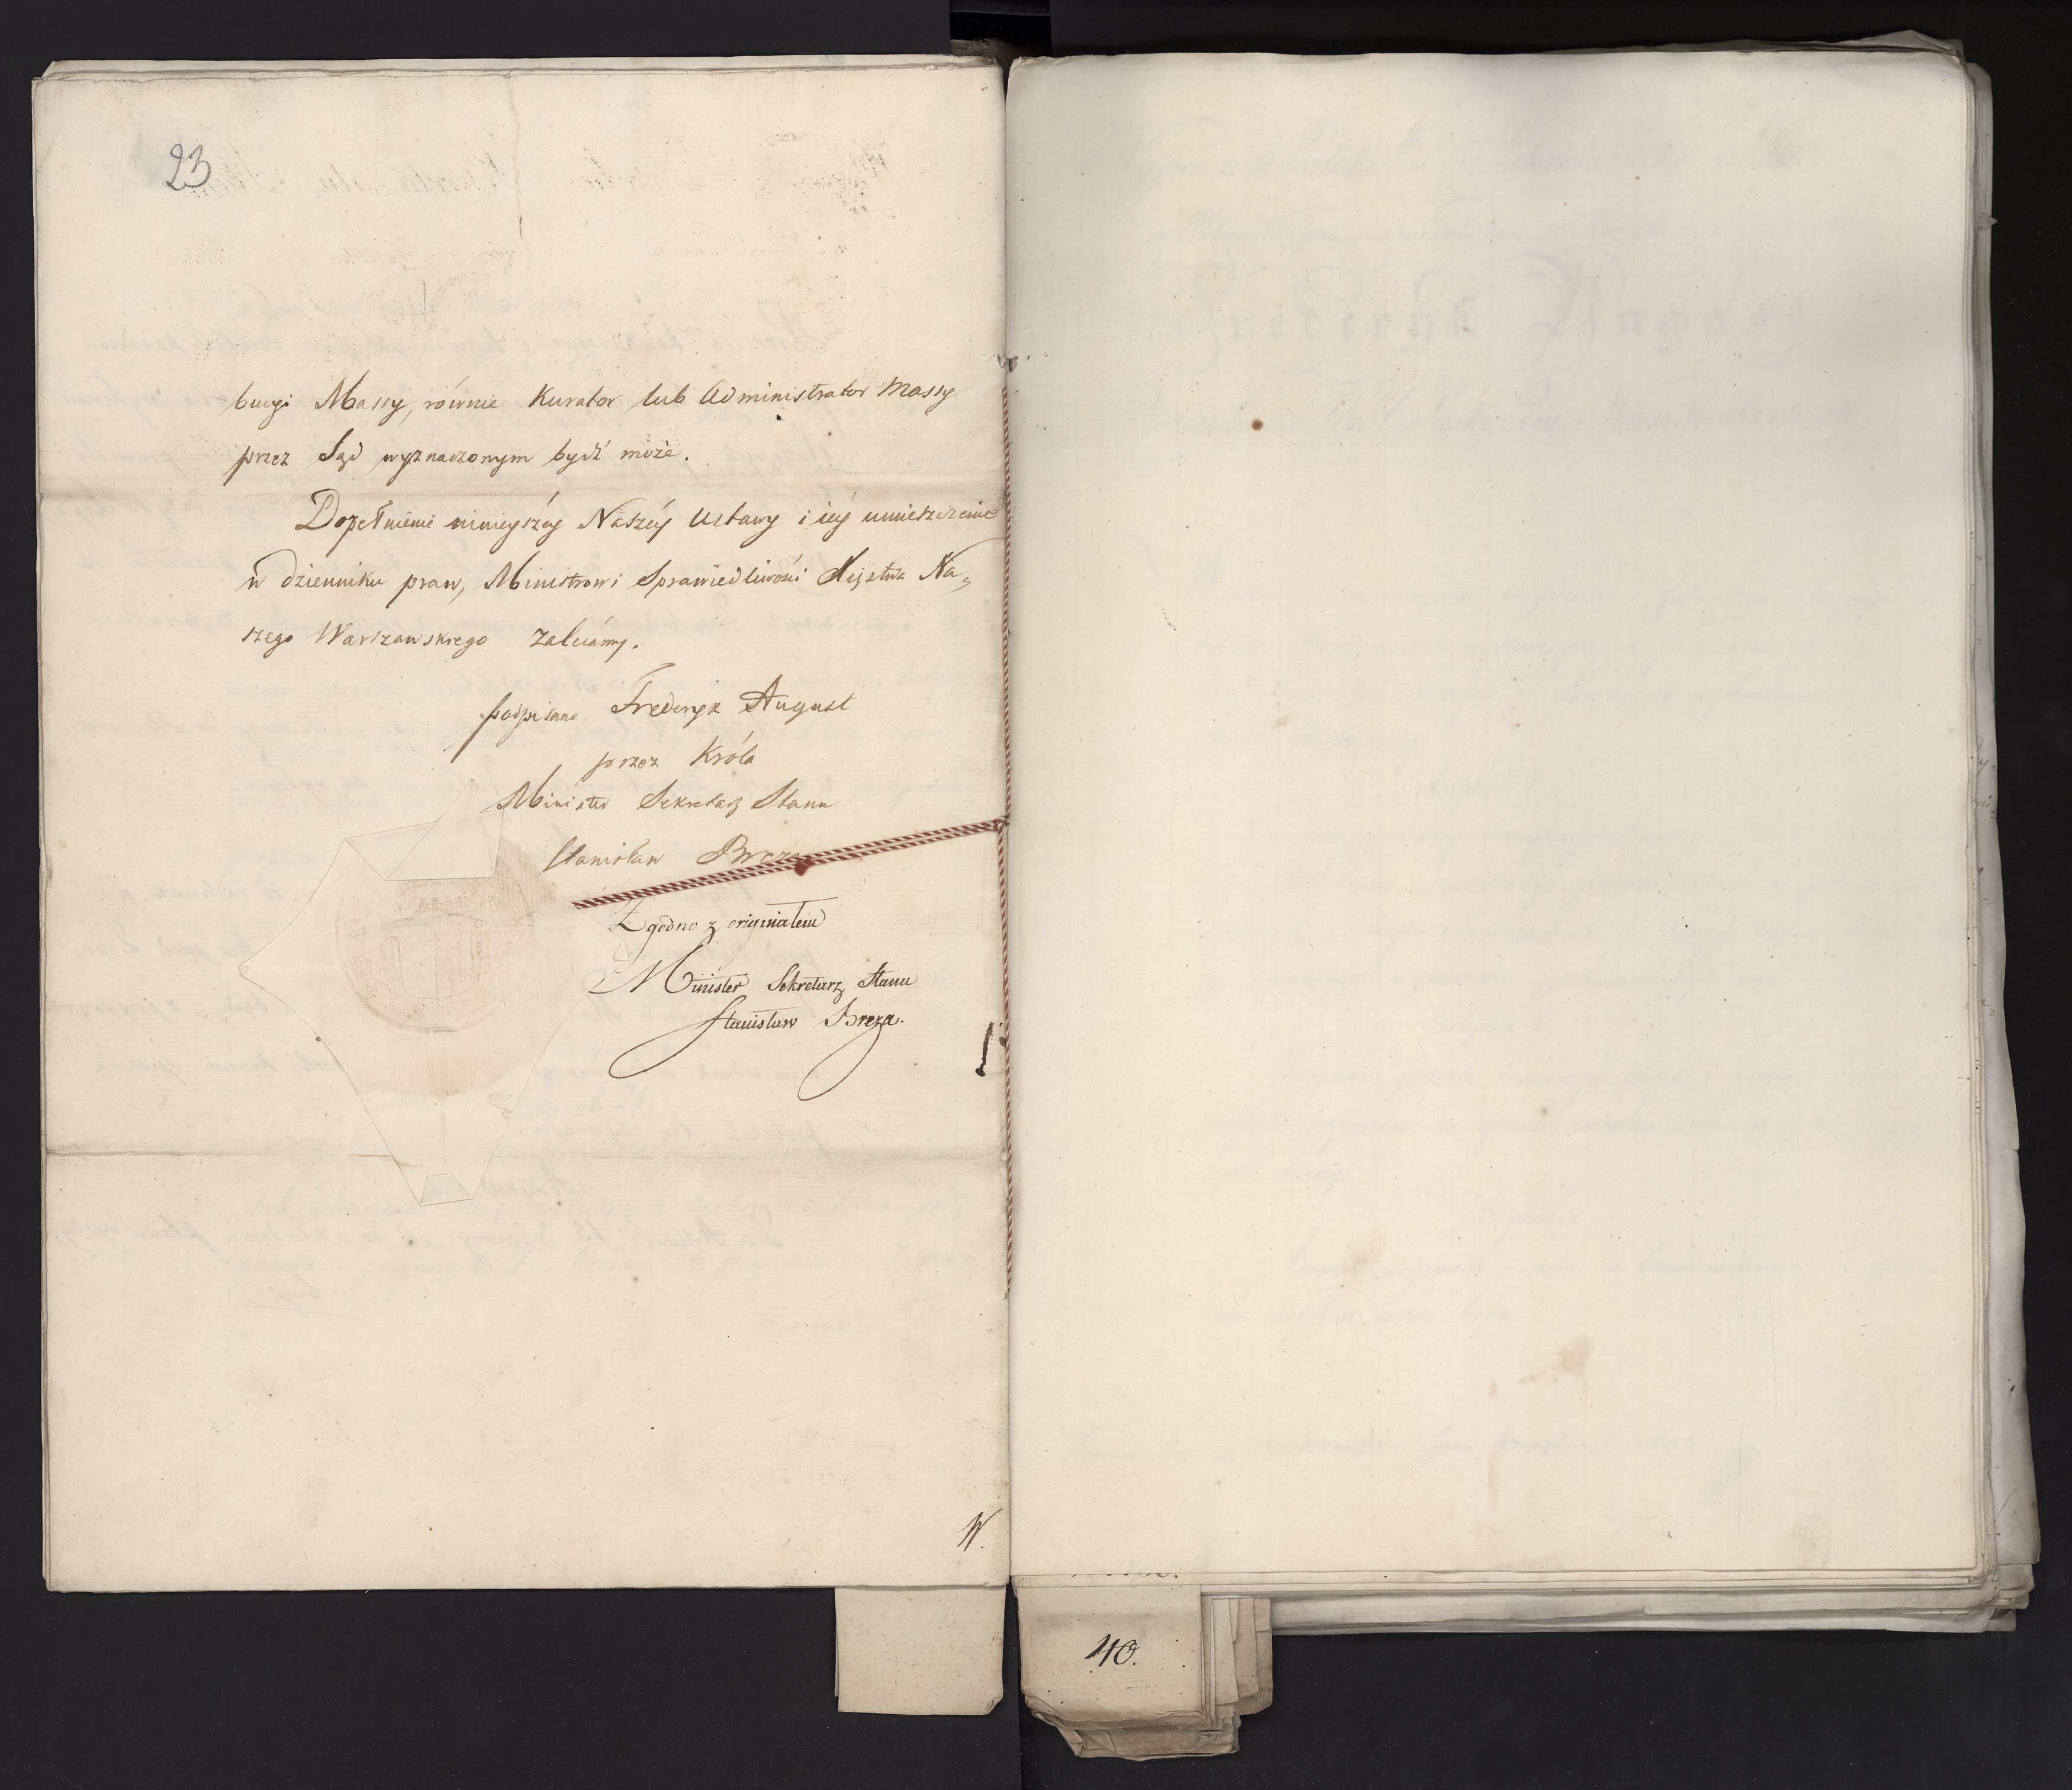 23
bucyi Massy, równie Kurator lub Administrator Massy
przez Sąd wyznaczonym bydź może.
Dopełnienie ninieyszéy Naszéy Ustawy i iéy umieszczenie
w dzienniku praw, Ministrowi Sprawiedliwości Xięstwa Na„
szego Warszawskiego zalecamy.
podpisano Frederyk August
przez Króla
Minister Sekretarz Stanu
Stanisław Breza
Zgodno z originałem
Minister Sekretarz Stanu
Stanisław Breza.
W.
40.